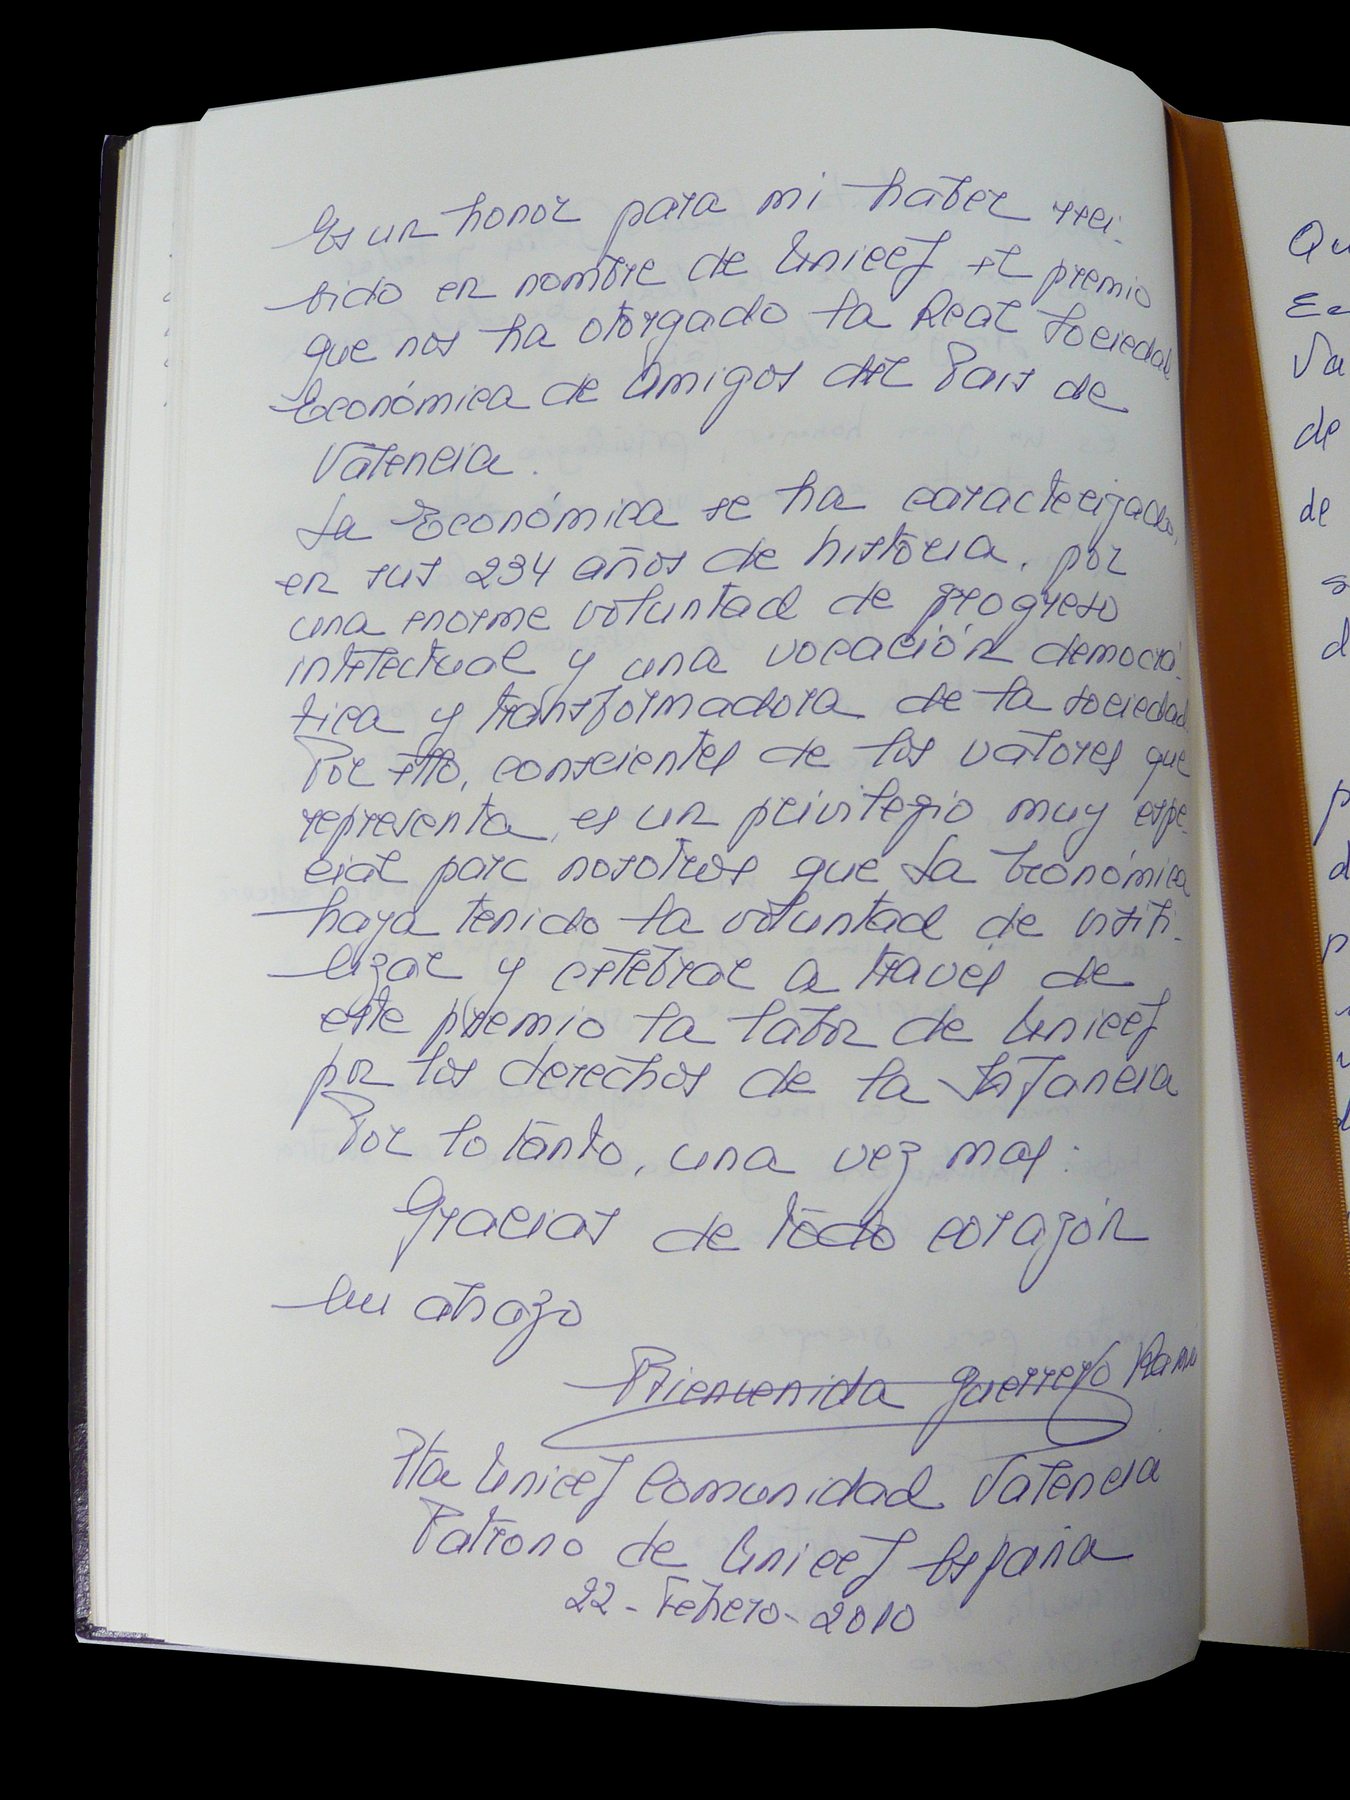 Es un honor para mi haber reci-
bido en nombre de Unicef el premio
que nos ha otorgado la Real Sociedad
Económica de Amigos del Pais de
Valencia.
La Económica se ha caracterizado,
en sus 234 años de historia, por
una enorme voluntad de progreso
intelectual y una vocación democrá-
tica y transformadora de la sociedad.
Por ello, conscientes de los valores que
representa, es un privilegio muy espe-
cial para nosotros que la Económica
haya tenido la voluntad de visibi-
lizar y celebrar a través de
este premio la labor de Unicef
por los derechos de la Infancia
Por lo tanto, una vez mas:
Gracias de todo corazón
Un abrazo
Bienvenida Guerrero
Pta Unicef Comunidad Valencia
Patrono de Unicef España
22-Febrero-2010
Qu
Ec
Va
de
de
s
d
p
d
p